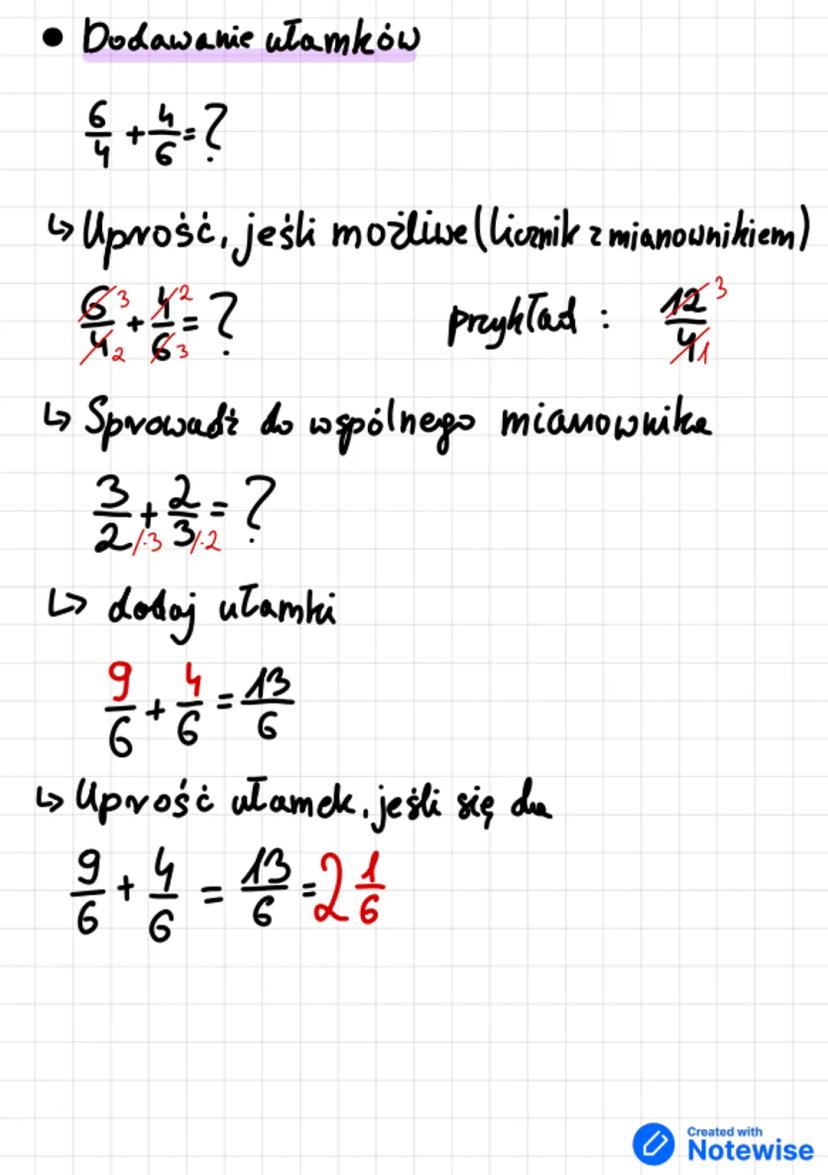 • Dodawanie ułamków
6/4 + 4/6 = ?
↳ Uprość, jeśli możliwe (licznik z mianownikiem)
6̸ 3/4̸ 2 + 4̸ 2/6̸ 3 = ? przykład : 1̸2̸ 3/4̸ 1
↳ Sprowadź do wspólnego mianownika
3/2 /·3 + 2/3 /·2 = ?
↳ dodaj ułamki
9/6 + 4/6 = 13/6
↳ Uprość ułamek, jeśli się da
9/6 + 4/6 = 13/6 = 2 1/6
Created with
Notewise